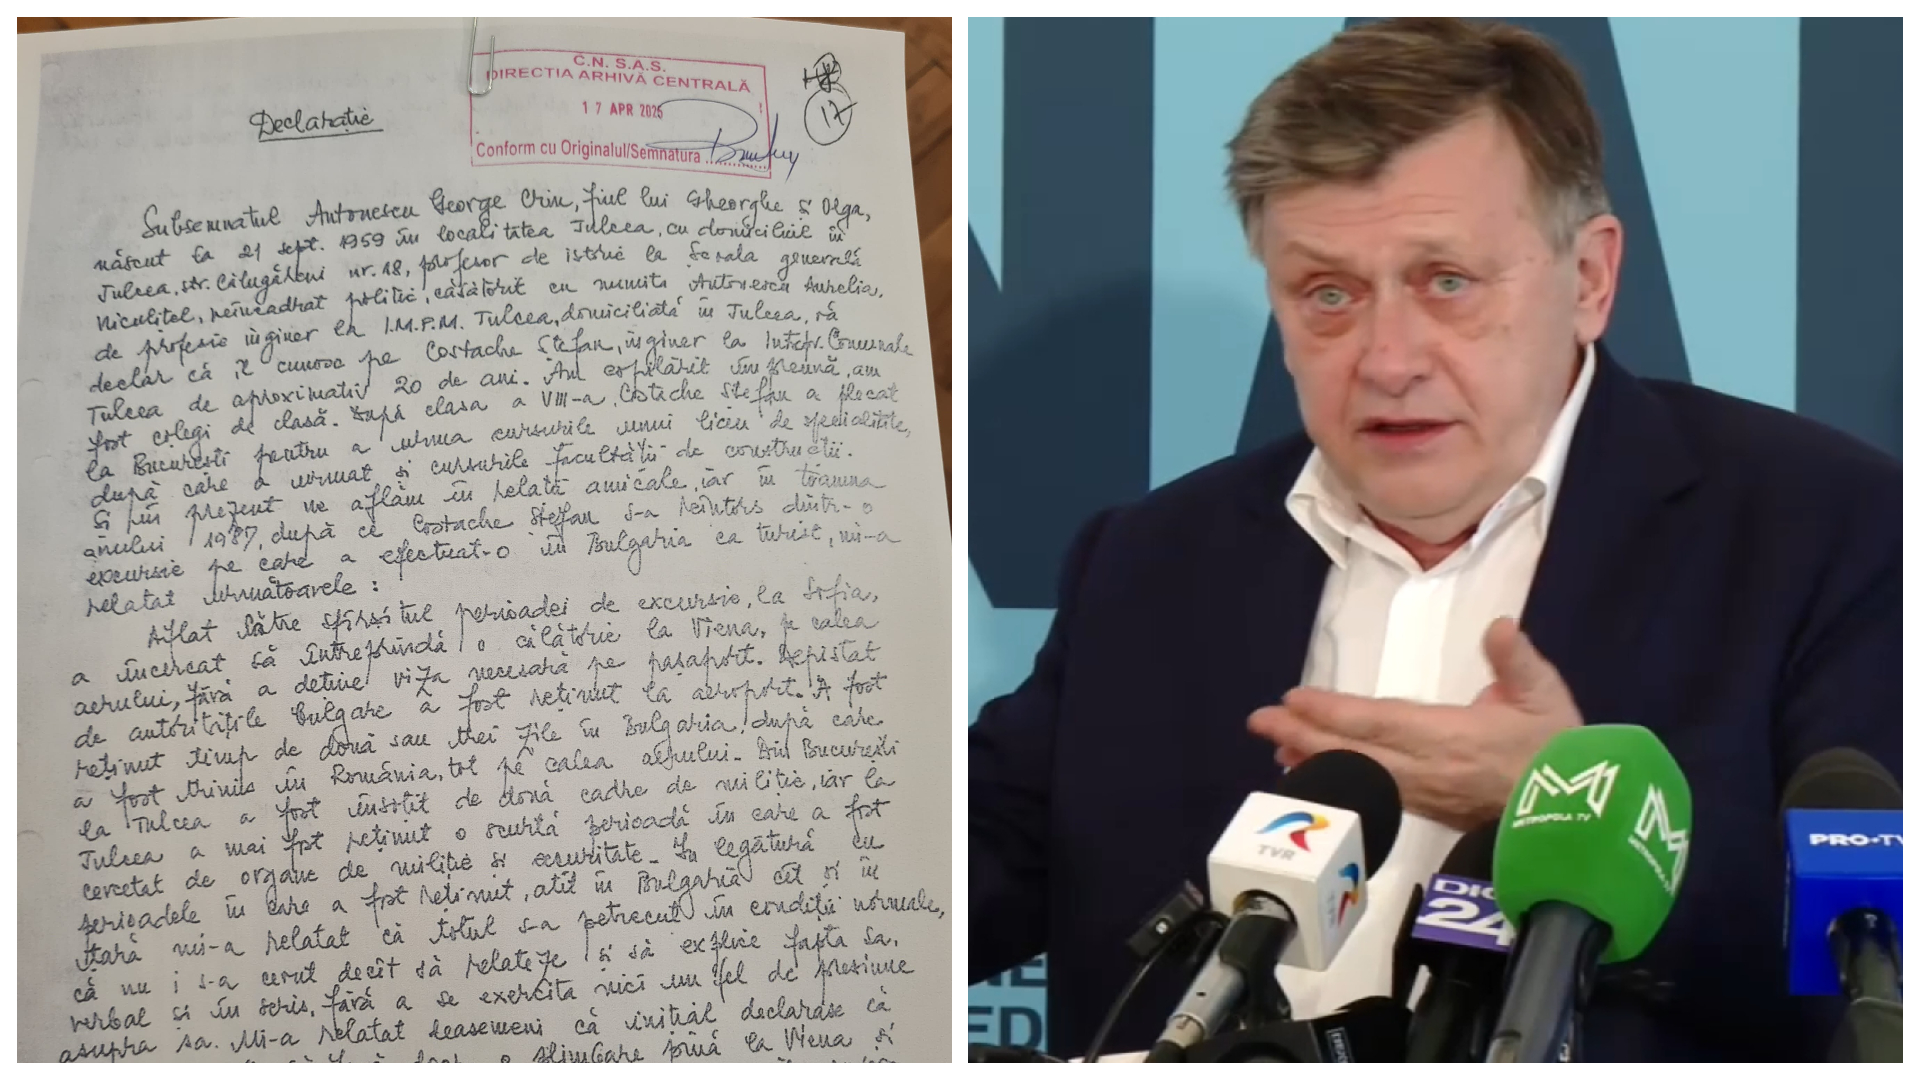 C.N. S.A.S.
DIRECTIA ARHIVĂ CENTRALĂ
17 APR 2025
Conform cu Originalul/Semnatura
17
Declarație
Subsemnatul Antonescu George Crin, fiul lui Gheorghe și Olga,
născut la 21 sept. 1959 în localitatea Tulcea, cu domiciliul în
Tulcea, str. Călugăreni nr. 18, profesor de istorie la Școala generală
Niculițel, neîncadrat politic, căsătorit cu numita Antonescu Aurelia,
de profesie inginer la I.M.P.M. Tulcea, domiciliată în Tulcea, vă
declar că îl cunosc pe Costache Ștefan, inginer la Intrepr. Comunale
Tulcea de aproximativ 20 de ani. Am copilărit împreună, am
fost colegi de clasă. După clasa a VIII-a, Costache Ștefan a plecat
la București pentru a urma cursurile unui liceu de specialitate,
după care a urmat și cursurile facultății de construcții.
Și în prezent ne aflăm în relații amicale, iar în toamna
anului 1987, după ce Costache Ștefan s-a reîntors dintr-o
excursie pe care a efectuat-o în Bulgaria ca turist, mi-a
relatat următoarele :
Aflat către sfîrșitul perioadei de excursie, la Sofia,
a încercat să întreprindă o călătorie la Viena, pe calea
aerului, fără a deține viza necesară pe pașaport. Depistat
de autoritățile bulgare a fost reținut la aeroport. A fost
reținut timp de două sau trei zile în Bulgaria, după care
a fost trimis în România, tot pe calea aerului. Din București
la Tulcea a fost însoțit de două cadre de miliție, iar la
Tulcea a mai fost reținut o scurtă perioadă în care a fost
cercetat de organe de miliție și securitate. În legătură cu
perioadele în care a fost reținut, atît în Bulgaria cît și în
țară mi-a relatat că totul s-a petrecut în condiții normale,
că nu i s-a cerut decît să relateze și să explice fapta sa,
verbal și în scris, fără a se exercita nici un fel de presiune
asupra sa. Mi-a relatat deasemeni că inițial declarase că
o plimbare pînă la Viena și
TVR
TVR
DIGI
24
METROPOLA TV
METROPOLA TV
PRO•TV
NE
ED